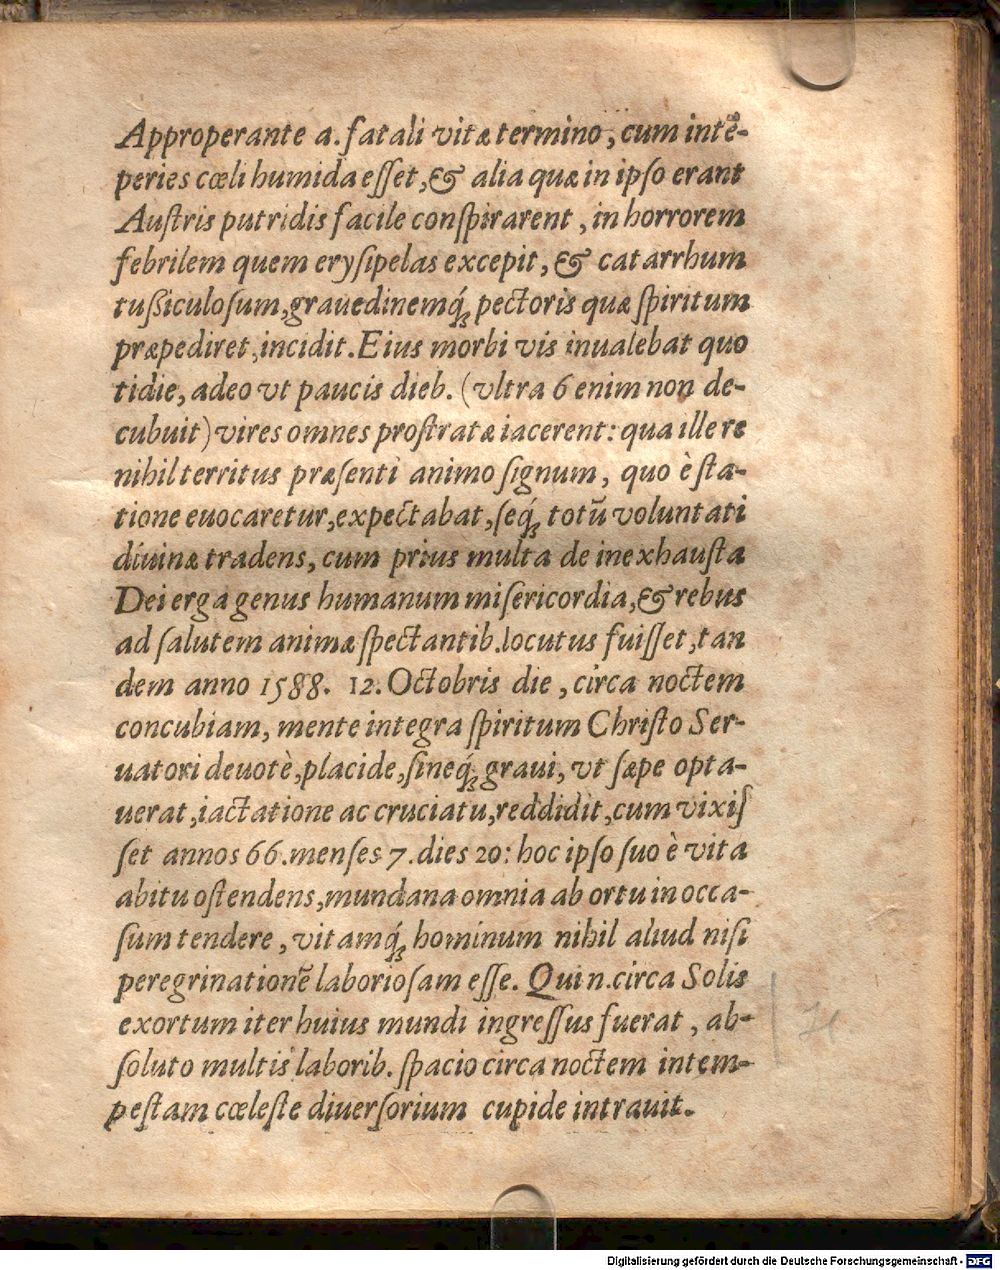 Approperante a. fatali vitæ termino, cum intẽ-
peries cœli humida eſſet, & alia quæ in ipſo erant
Auſtris putridis facile conſpirarent, in horrorem
febrilem quem eryſipelas excepit, & catarrhum
tußiculoſum, grauedinemq́; pectoris quæ ſpiritum
præpediret, incidit. Eius morbi vis inualebat quo
tidie, adeo vt paucis dieb. (vltra 6 enim non de-
cubuit) vires omnes proſtratæ iacerent: qua ille re
nihil territus præſenti animo ſignum, quo è ſta-
tione euocaretur, expectabat, ſeq́; totũ voluntati
diuinæ tradens, cum prius multa de inexhauſta
Dei erga genus humanum miſericordia, & rebus
ad ſalutem animæ ſpectantib. locutus fuiſſet, tan
dem anno 1588. 12. Octobris die, circa noctem
concubiam, mente integra ſpiritum Chriſto Ser-
uatori deuotè, placide, ſineq́; graui, vt ſæpe opta-
uerat, iactatione ac cruciatu, reddidit, cum vixiſ
ſet annos 66. menſes 7. dies 20: hoc ipſo ſuo è vita
abitu oſtendens, mundana omnia ab ortu in occa-
ſum tendere, vitamq́; hominum nihil aliud niſi
peregrinationẽ laborioſam eſſe. Qui n. circa Solis
exortum iter huius mundi ingreſſus fuerat, ab-
ſoluto multis laborib. ſpacio circa noctem intem-
peſtam cœleſte diuerſorium cupide intrauit.
Digitalisierung gefördert durch die Deutsche Forschungsgemeinschaft - DFG